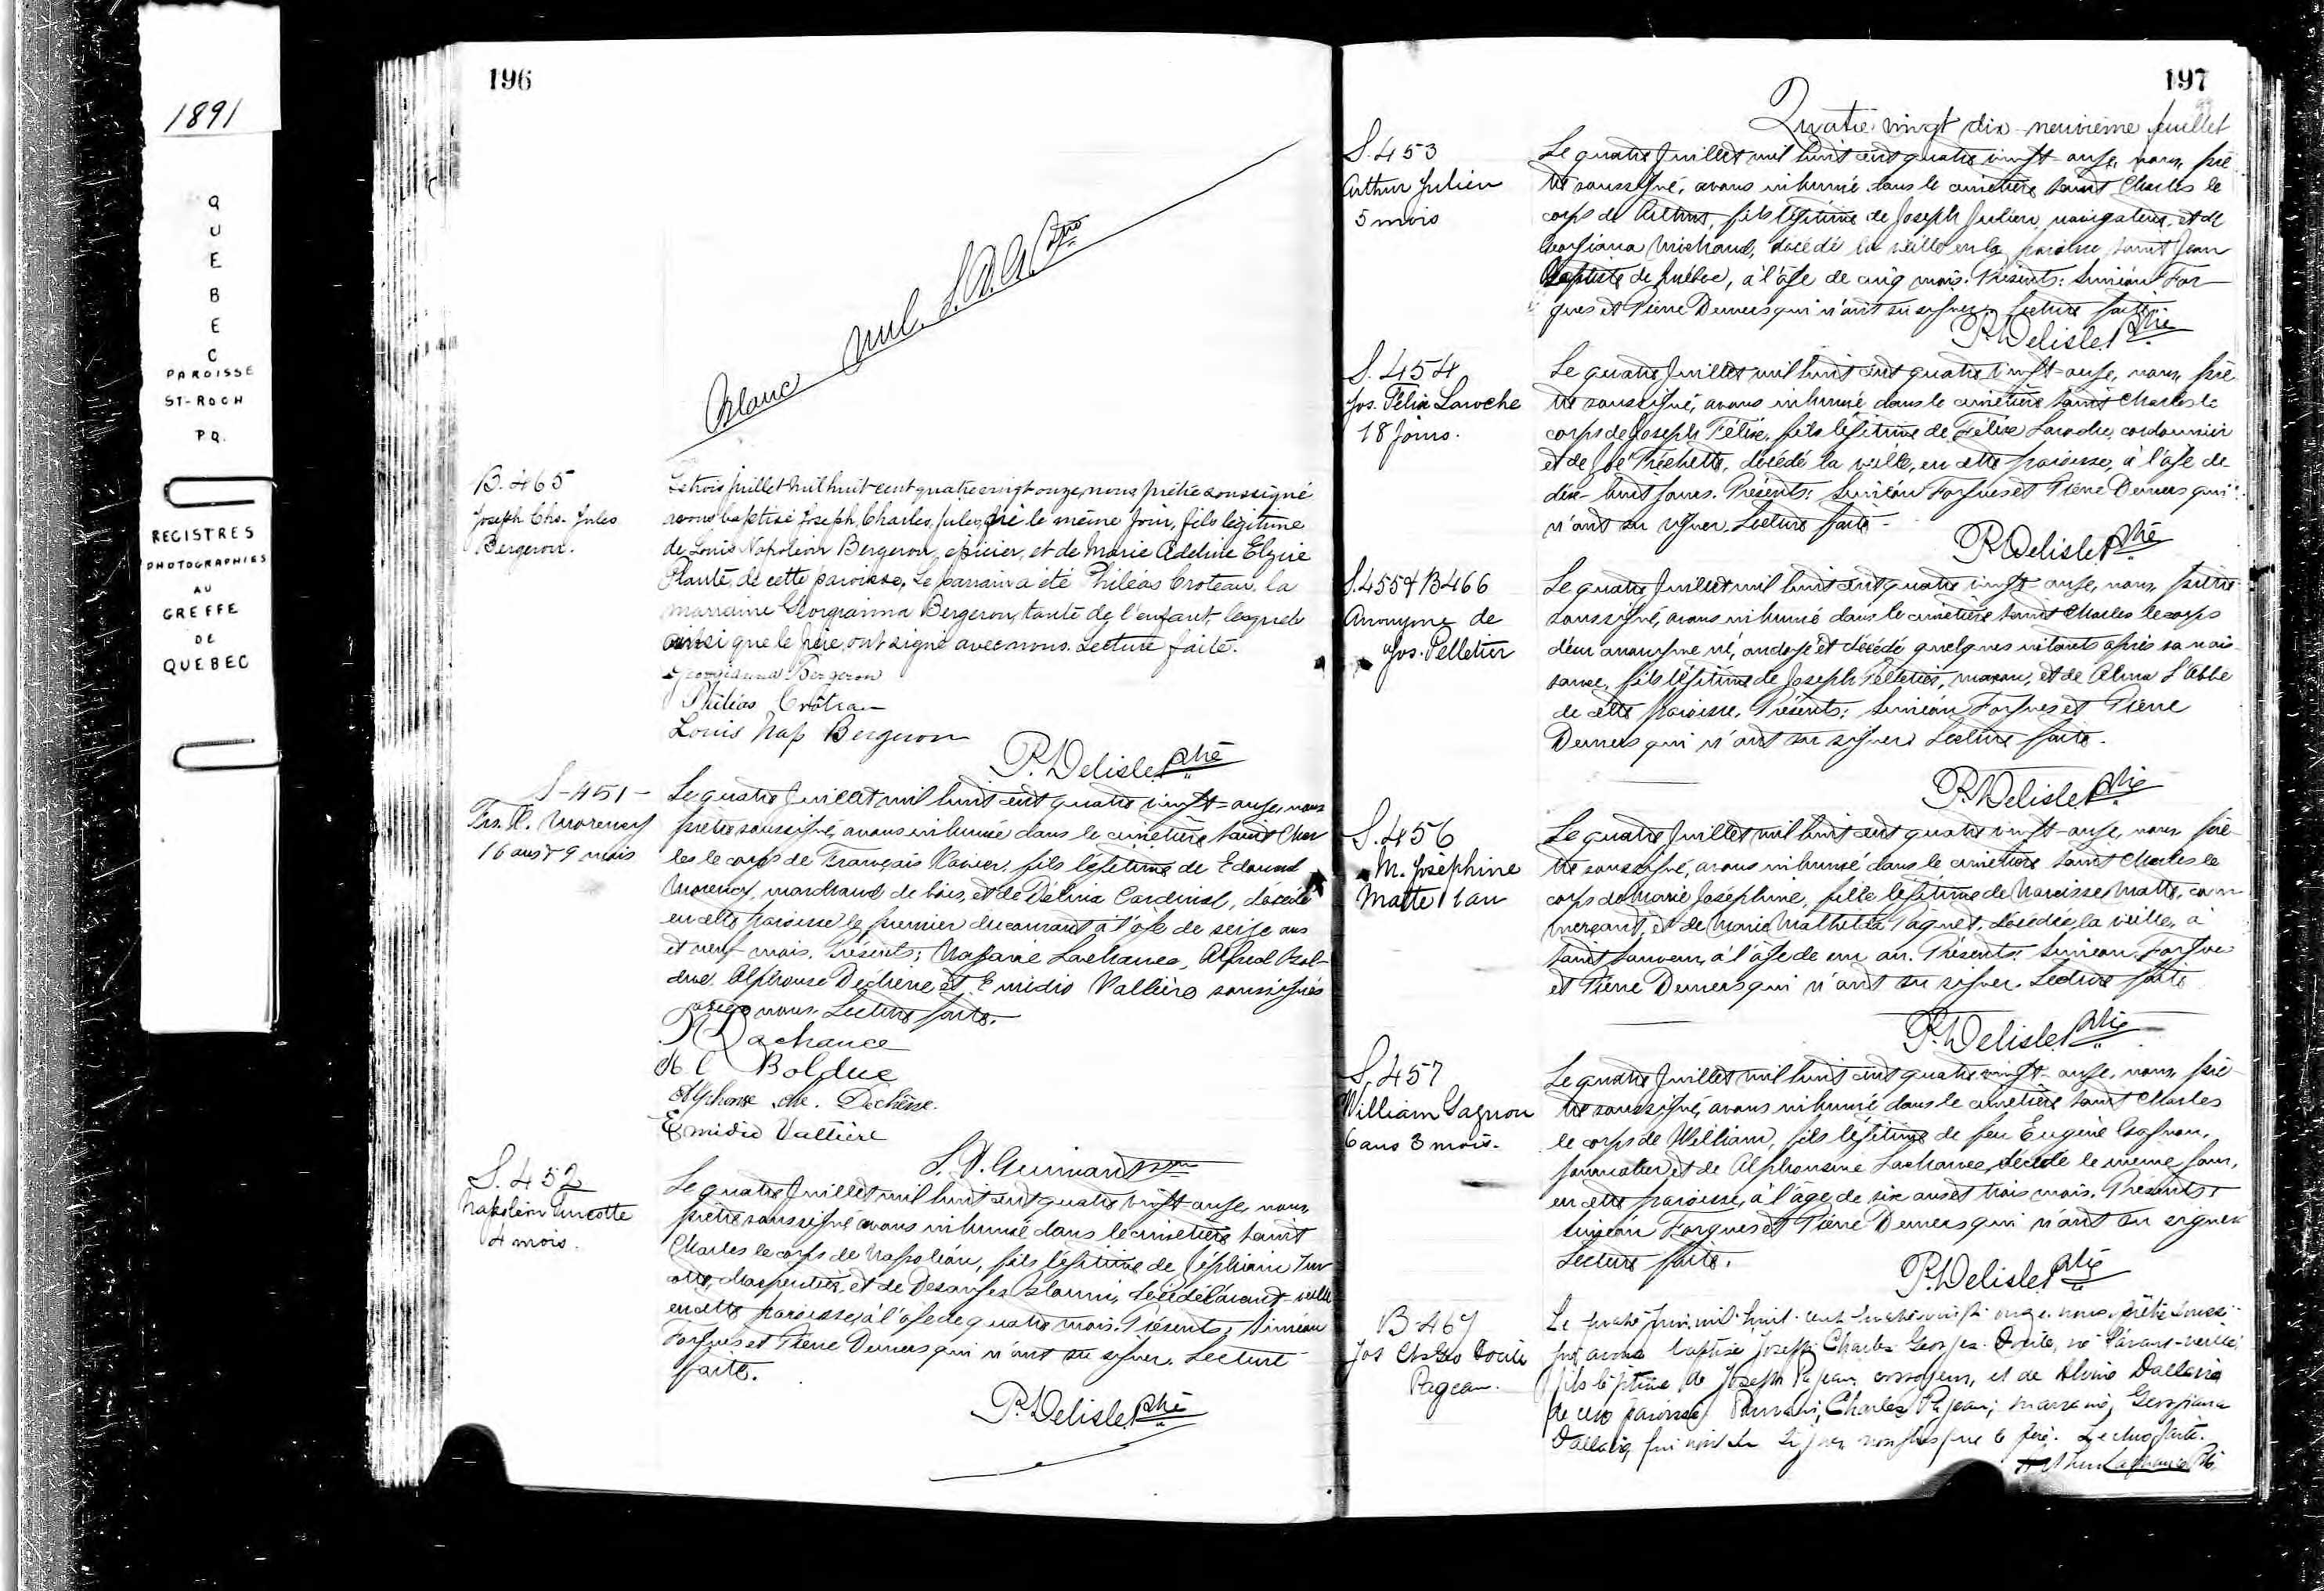 1891
QUEBEC
PAROISSE
ST-ROCH
P.Q.
REGISTRES
PHOTOGRAPHIES
AU
GREFFE
DE
QUEBEC
196
Blanc nul
B. 465
Joseph Chs. Jules
Bergeron.
Le trois juillet mil huit-cent quatre vingt onze, nous prêtre soussigné
avons baptisé Joseph, Charles, Jules, né le même jour, fils légitime
de Louis Napoléon Bergeron, épicier, et de Marie Adeline Elzire
Planté, de cette paroisse, Le parrain a été Philéas Croteau, la
marraine Georgianna Bergeron, tante de l'enfant, lesquels
ainsi que le père, ont signé avec nous. Lecture faite.
Georgianna Bergeron
Philéas Crôteau
Louis Nap Bergeron
P. Delisle Ptre
S-451-
Frs. X. Morency
16 ans & 9 mois
Le quatre Juillet mil huit cent quatre vingt-onze, nous
prêtre soussigné, avons inhumé dans le cimetière Saint Char
les le corps de François Xavier, fils légitime de Edouard
Morency, marchand de bois, et de Délina Cardinal, décédé
en cette paroisse le premier du courant à l'âge de seize ans
et neuf mois. Présents: Lachance, Alfred Bol-
duc, Alphonse Déchène et Emidio Vallière soussignés
avec nous. Lecture faite.
N Lachance
Bolduc
Alphonse Dechêne.
Emidio Vallière
S.
S. 452
Napoléon Turcotte
4 mois.
Le quatre Juillet mil huit cent quatre vingt-onze, nous,
prêtre soussigné avons inhumé dans le cimetière Saint
Charles le corps de Napoléon, fils légitime de Zéphirin Tur
cotte, charpentier, et de Desanges décédé l'avant-veille
en cette paroisse, à l'âge de quatre mois. Présents: Siméon
Forgues et Pierre Demers qui n'ont su signer. Lecture
faite.
P. Delisle Ptre
197
Quatre vingt dix-neuvième feuillet
S. 453
Arthur Julien
5 mois
Le quatre Juillet mil huit cent quatre vingt-onze, nous, prê
tre soussigné, avons inhumé dans le cimetière Saint Charles le
corps de Arthur, fils légitime de Joseph Julien, navigateur, et de
Georgiana Michaud, décédé la veille en la paroisse Saint Jean
Baptiste de Québec, à l'âge de cinq mois. Présents: Siméon For-
gues et Pierre Demers qui n'ont su signer. Lecture faite.
P. Delisle Ptre
S. 454
Jos. Félix Laroche
18 Jours.
Le quatre Juillet mil huit cent quatre vingt-onze, nous, prê
tre soussigné, avons inhumé dans le cimetière Saint Charles le
corps de Joseph Félix, fils légitime de Félix Laroche, cordonnier
et de Fréchette, décédé la veille, en cette paroisse, à l'âge de
dix-huit jours. Présents: Siméon Forgues et Pierre Demers qui
n'ont su signer. Lecture faite-
P. Delisle Ptre
S. 455 & B466
Anonyme de
Jos. Pelletier
Le quatre Juillet mil huit cent quatre vingt onze, nous, prêtre
soussigné, avons inhumé dans le cimetière Saint Charles le corps
d'un anonyme né, ondoyé et décédé quelques instants après sa nais
sance, fils légitime de Joseph Pelletier, maçon, et de Alma L'Abbé
de cette paroisse, Présents: Siméon Forgues et Pierre
Demers qui n'ont su signer. Lecture faite.
P. Delisle Ptre
S. 456
M. Joséphine
Matte 1 an
Le quatre Juillet mil huit cent quatre vingt-onze, nous, prê
tre soussigné, avons inhumé dans le cimetière Saint Charles le
corps de Marie Joséphine, fille légitime de Narcisse Matte, com
merçant, et de Marie Mathilda Paquet, décédée, la veille, à
Saint Sauveur, à l'âge de un an. Présents: Siméon Forgues
et Pierre Demers qui n'ont su signer. Lecture faite
P. Delisle Ptre
S. 457
William Gagnon
6 ans 3 mois.
Le quatre Juillet mil huit cent quatre vingt-onze, nous, prê
tre soussigné, avons inhumé dans le cimetière Saint Charles
le corps de William, fils légitime de feu Eugène Gagnon,
journalier et de Alphonsine Lachance, décédé le même jour,
en cette paroisse, à l'âge de six ans et trois mois. Présents:
Siméon Forgues et Pierre Demers qui n'ont su signer
Lecture faite.
P. Delisle Ptre
B 467
Jos Chs Geo
Pageau.
Le quatre mil huit cent quatre vingt onze nous, prêtre soussi-
gné avons baptisé Joseph Charles Georges né l'avant-veille,
fils légitime de Joseph Pageau, corroyeur, et de Dallaire
de cette paroisse. Parrain, Charles Pageau; marraine, Georgiana
Dallaire, qui n'ont su signer non plus que le père. Lecture faite.